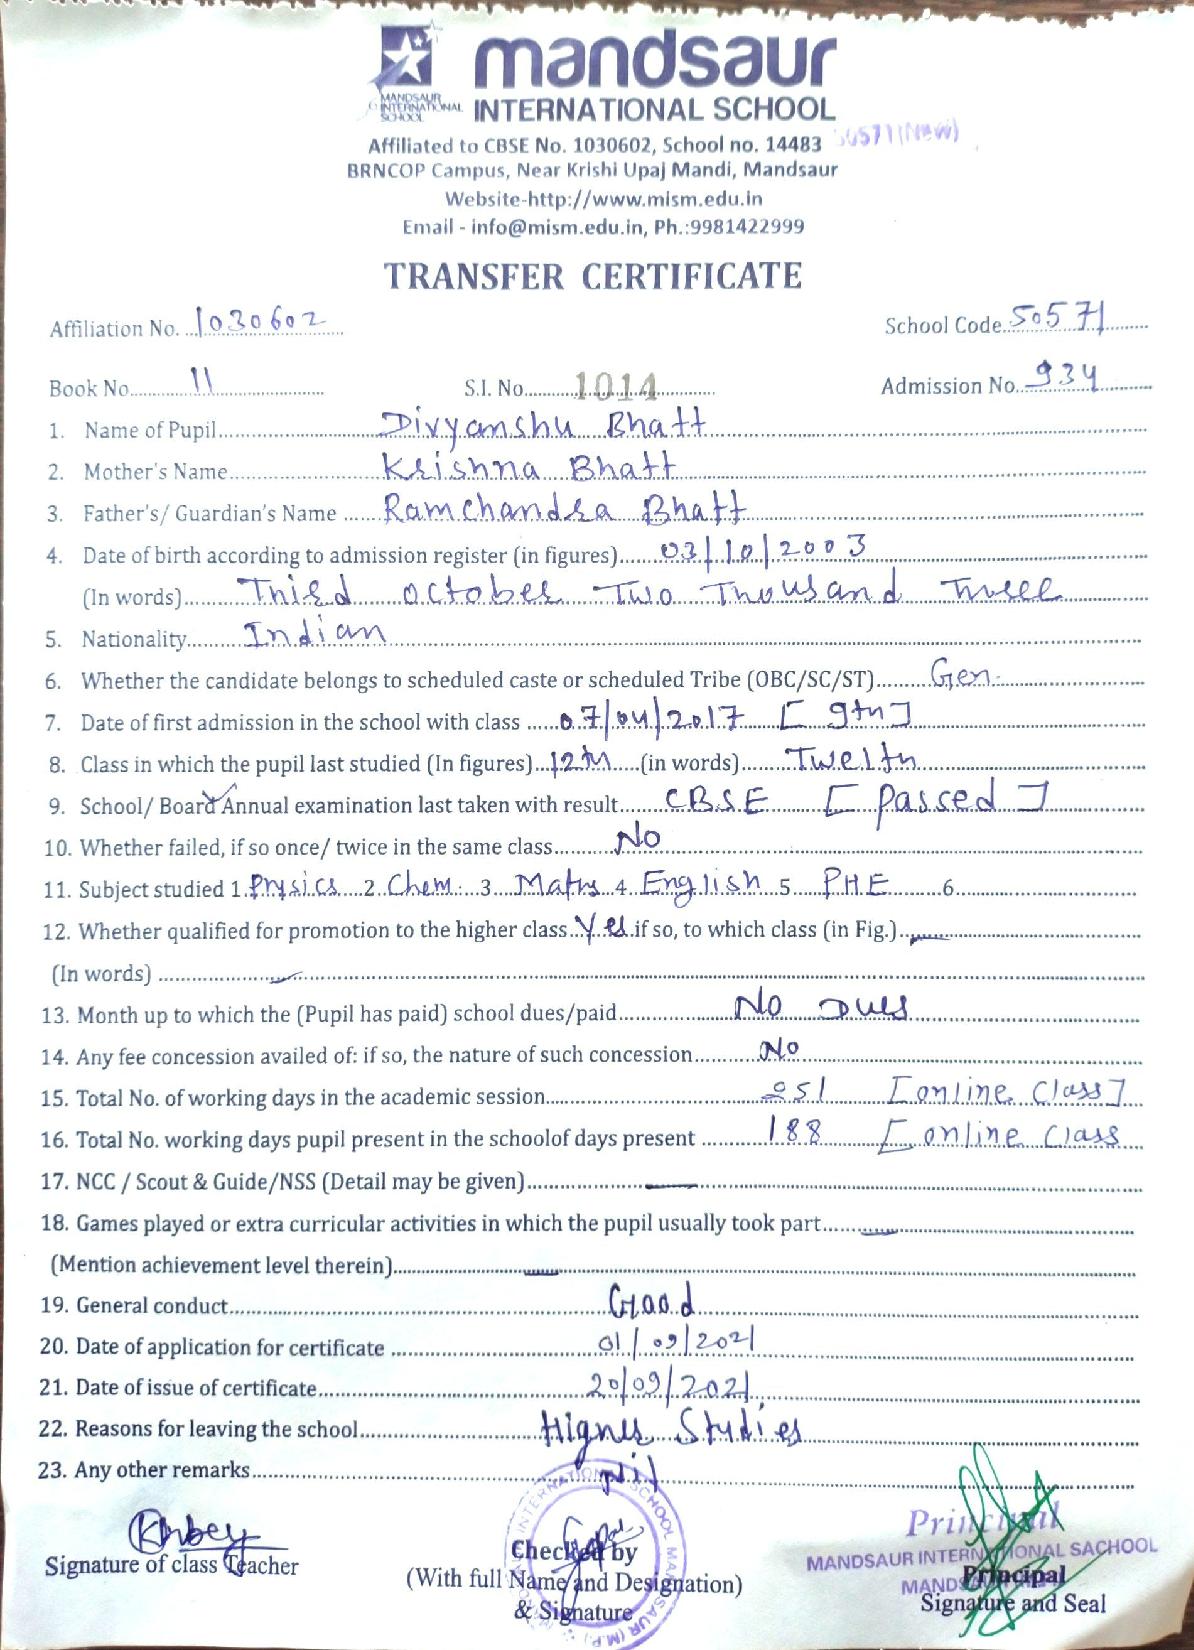 mandsaur
MANDSAUR
INTERNATIONAL
SCHOOL
INTERNATIONAL SCHOOL
Affiliated to CBSE No. 1030602, School no. 14483 50571(New)
BRNCOP Campus, Near Krishi Upaj Mandi, Mandsaur
Website-http://www.mism.edu.in
Email - info@mism.edu.in, Ph.:9981422999
TRANSFER CERTIFICATE
Affiliation No. 1030602 School Code 50571
Book No. 11 S.I. No. 1014 Admission No. 934
1. Name of Pupil Divyanshu Bhatt
2. Mother's Name Krishna Bhatt
3. Father's/ Guardian's Name Ramchandra Bhatt
4. Date of birth according to admission register (in figures) 03/10/2003
(In words) Third October Two Thousand Three
5. Nationality Indian
6. Whether the candidate belongs to scheduled caste or scheduled Tribe (OBC/SC/ST) Gen.
7. Date of first admission in the school with class 07/04/2017 [9th]
8. Class in which the pupil last studied (In figures) 12th (in words) Twelth
9. School/ Board Annual examination last taken with result CBSE [passed]
10. Whether failed, if so once/ twice in the same class No
11. Subject studied 1. Physics 2. Chem. 3. Maths 4. English 5. PHE 6.
12. Whether qualified for promotion to the higher class Yes if so, to which class (in Fig.)
(In words)
13. Month up to which the (Pupil has paid) school dues/paid No Dues
14. Any fee concession availed of: if so, the nature of such concession No
15. Total No. of working days in the academic session 251 [online Class]
16. Total No. working days pupil present in the schoolof days present 188 [online Class
17. NCC / Scout & Guide/NSS (Detail may be given)
18. Games played or extra curricular activities in which the pupil usually took part
(Mention achievement level therein)
19. General conduct Good
20. Date of application for certificate 01/09/2021
21. Date of issue of certificate 20/09/2021
22. Reasons for leaving the school Higher Studies
23. Any other remarks Nil
Signature of class Teacher
Checked by
(With full Name and Designation)
& Signature
Principal
MANDSAUR INTERNATIONAL SACHOOL
Principal
Signature and Seal